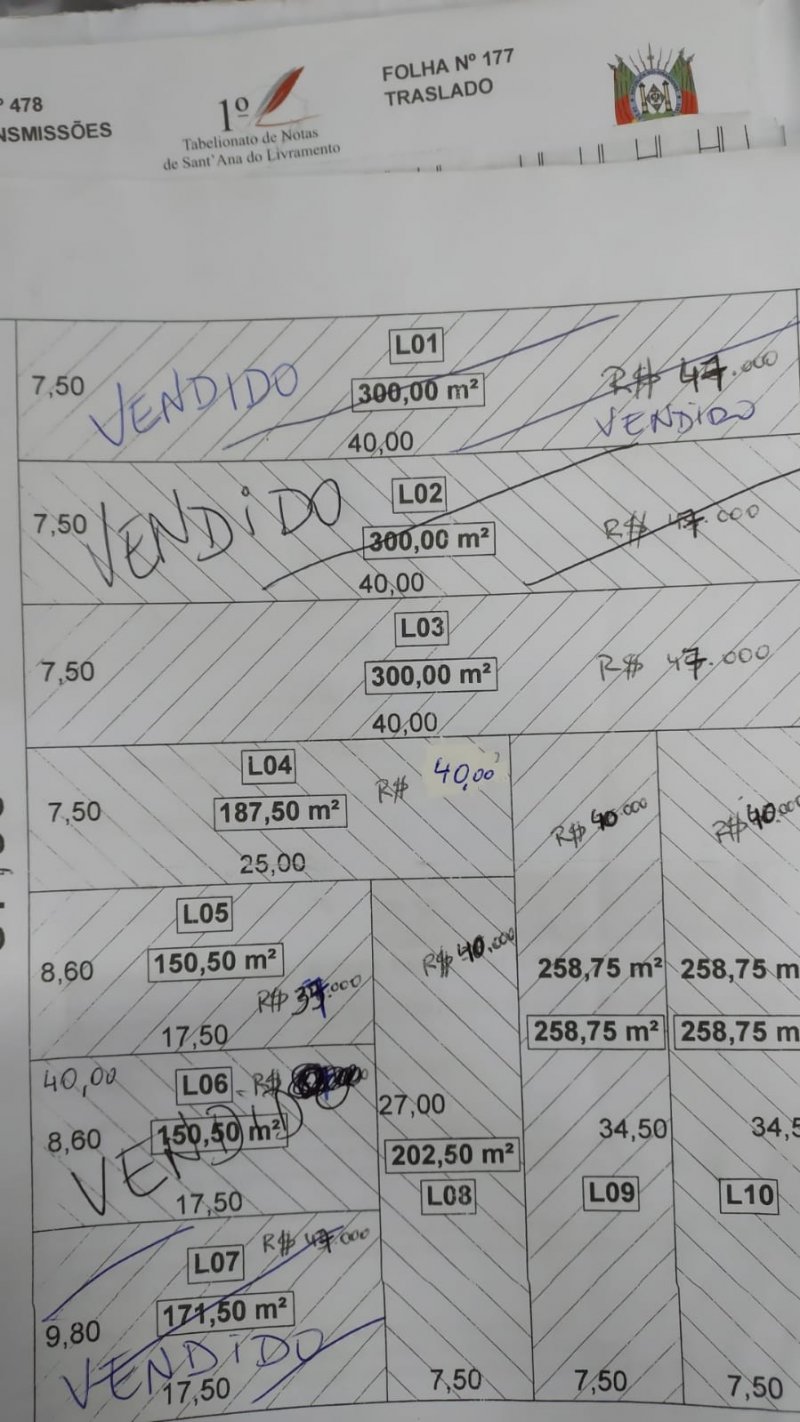 º 478
NSMISSÕES
1º
Tabelionato de Notas
de Sant'Ana do Livramento
FOLHA Nº 177
TRASLADO
L01
7,50
VENDIDO
300,00 m²
R$ 47.000
VENDIDO
40,00
L02
7,50
VENDIDO
300,00 m²
R$ 47.000
40,00
L03
7,50
300,00 m²
R$ 47.000
40,00
L04
R$ 40,00
7,50
187,50 m²
25,00
R$ 40.000
R$ 40.000
L05
8,60
150,50 m²
R$ 37.000
17,50
R$ 40.000
258,75 m²
258,75 m
258,75 m²
258,75 m
40,00
L06
R$
8,60
150,50 m²
VENDIDO
17,50
27,00
202,50 m²
L08
34,50
L09
34,5
L10
L07
R$ 47.000
9,80
171,50 m²
VENDIDO
17,50
7,50
7,50
7,50